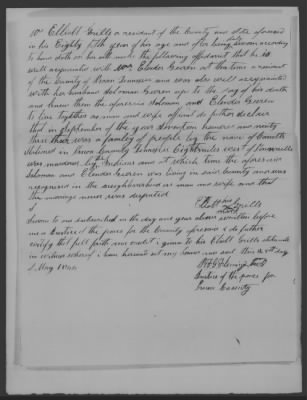 Mr Elliott Grills a resident of the County and State aforesaid
in his Eighty fifth year of his age and after being duly sworn according
to law doth on his oath make the following affidavit that he is
well acquainted with Mrs Elender Green at that time a resident
of the County of Tennessee and was also well acquainted
with her husband Soloman Green up to the day of his death
and knew them the aforesaid Soloman and Elender Green
to live together as man and wife affiant do further declare
that in September of the year Seventeen hundred and ninety
three there was a family of people by the name of
in County Tennessee Eight miles west of
was murdered by the Indians and at which time the aforesaid
Soloman and Elender Green was living in said County and was
recognised in the neighbourhood as man and wife and that
the marriage never was disputed
Elliott his Grills
mark
Sworn to and subscribed in the day and year above written before
me a Justice of the peace for the County aforesaid & do further
certify that full faith and credit is given to his Elliott Grills statements
in witness whereof I have hereunto set my hand and seal this day
of May
Justice of the peace for
County